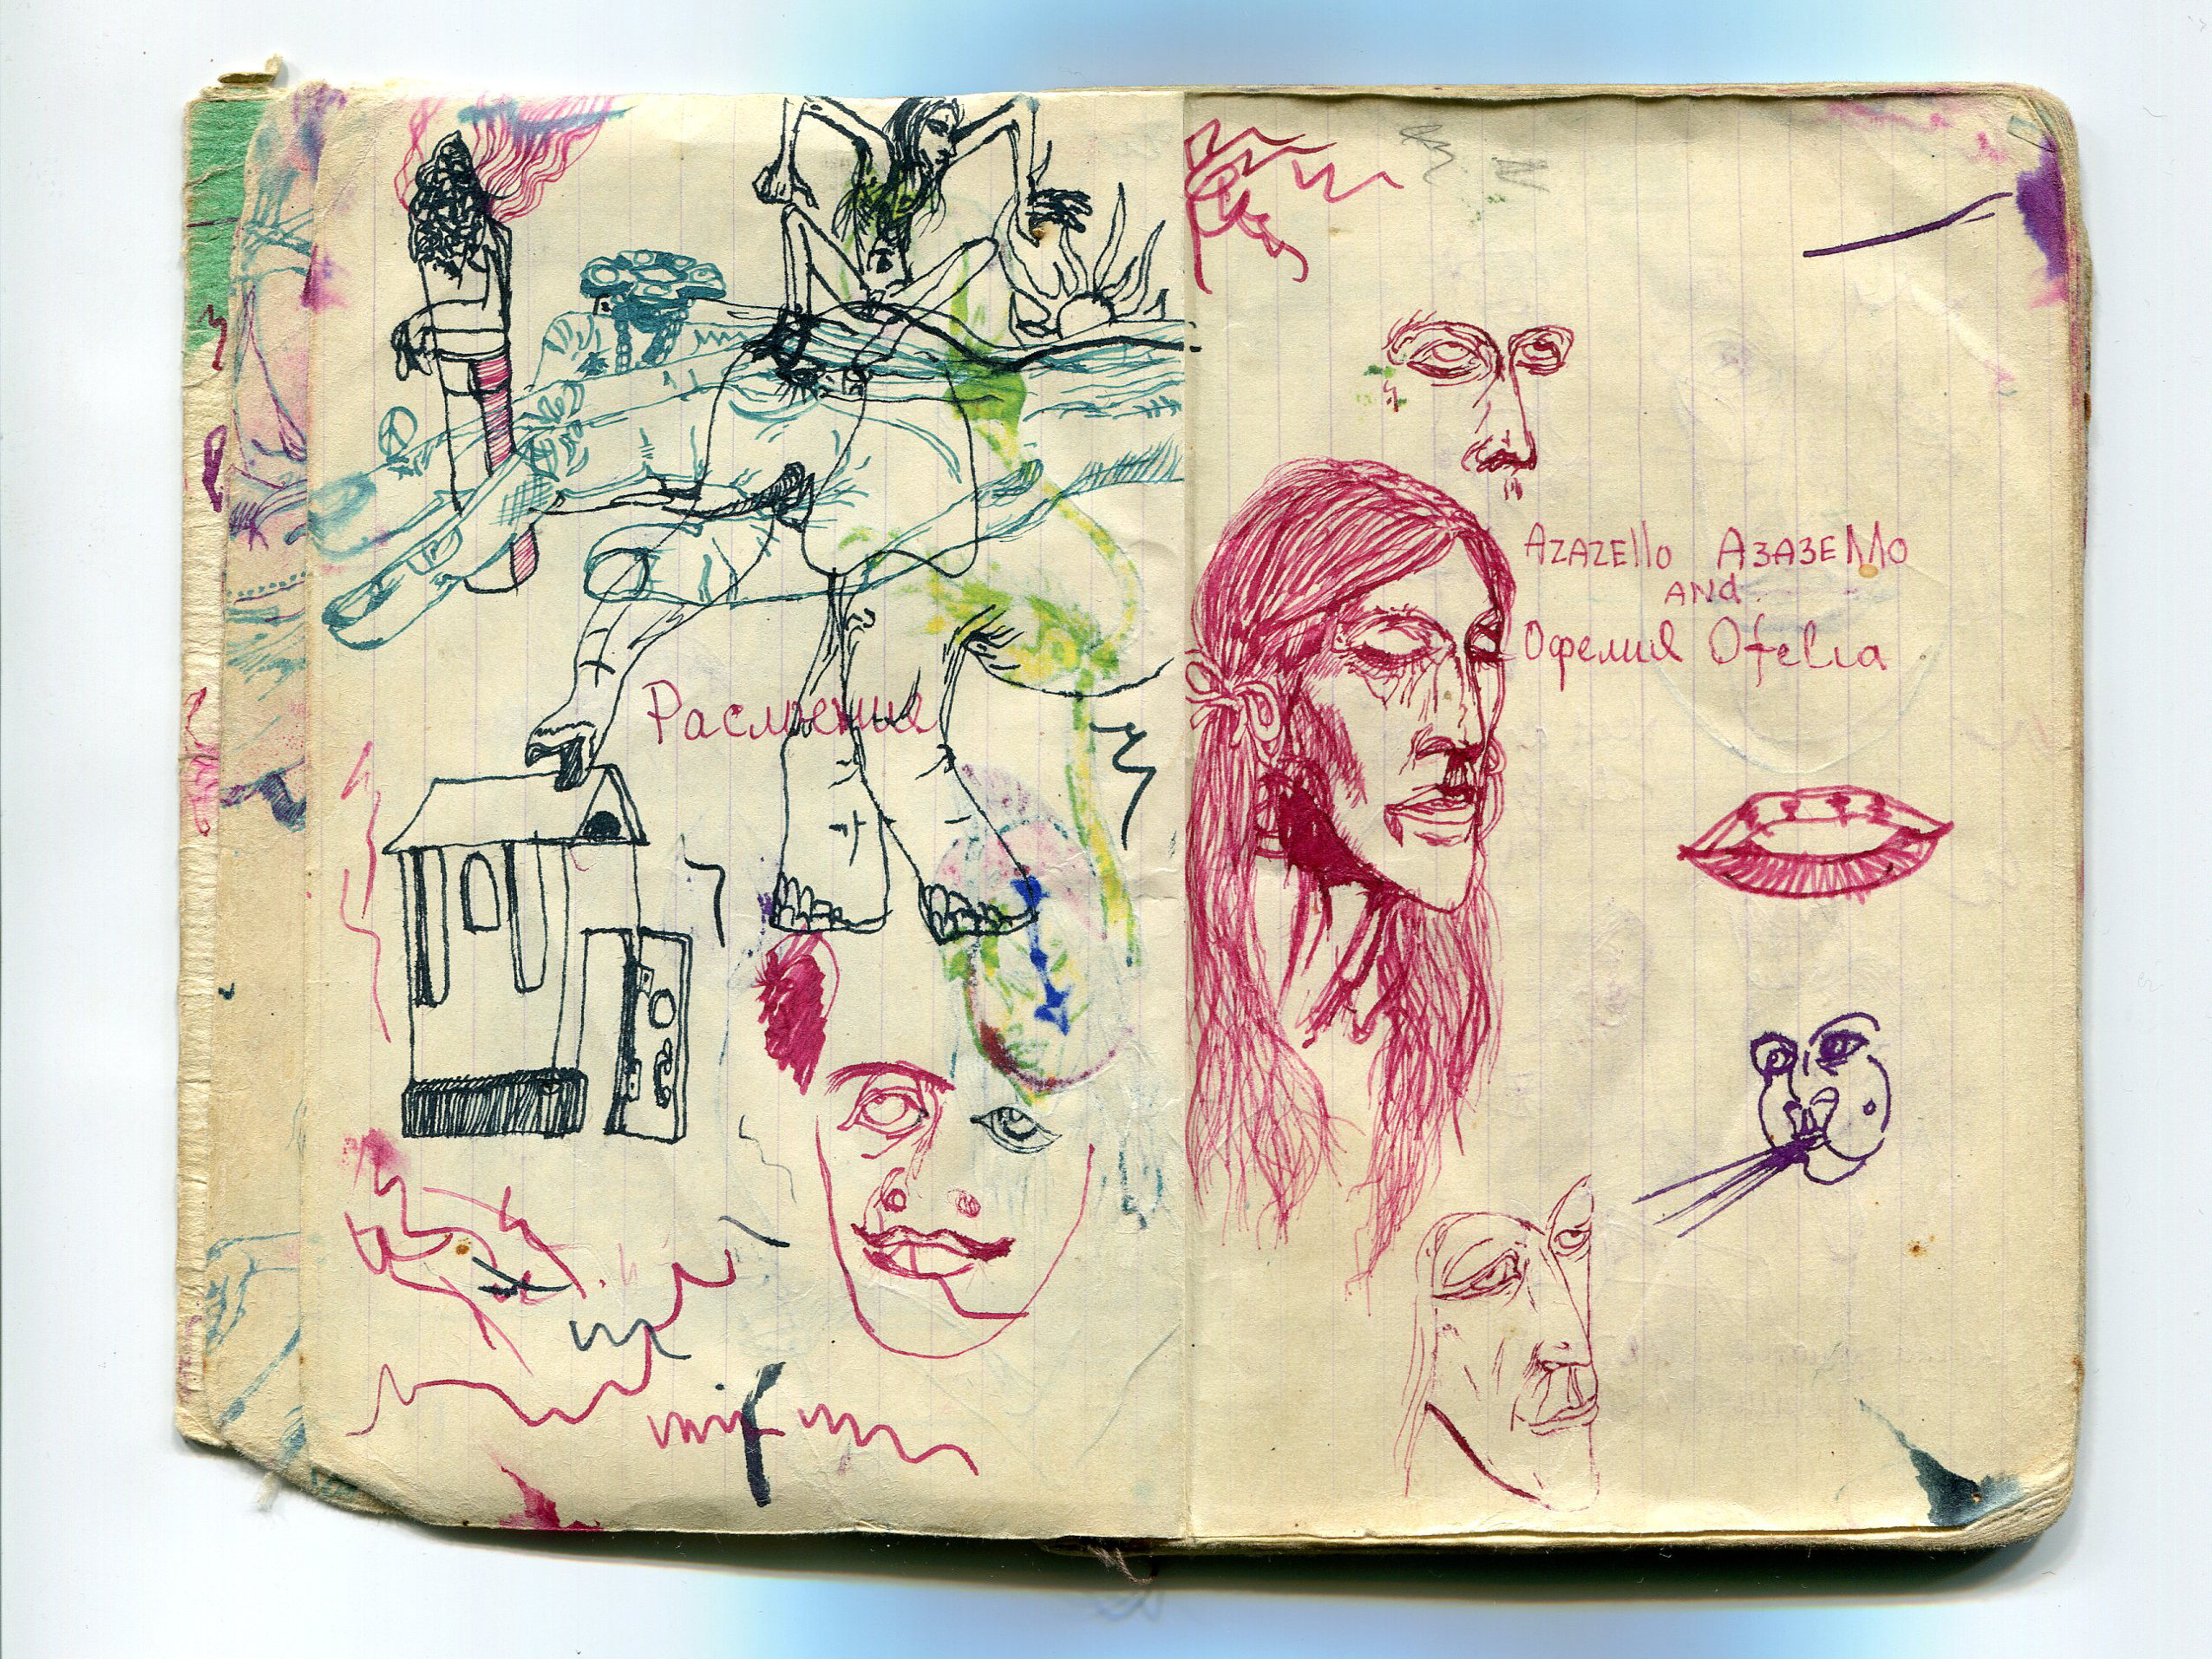 AZAZEllo АЗАЗЕЛЛО
ANd
Офелия Ofelia